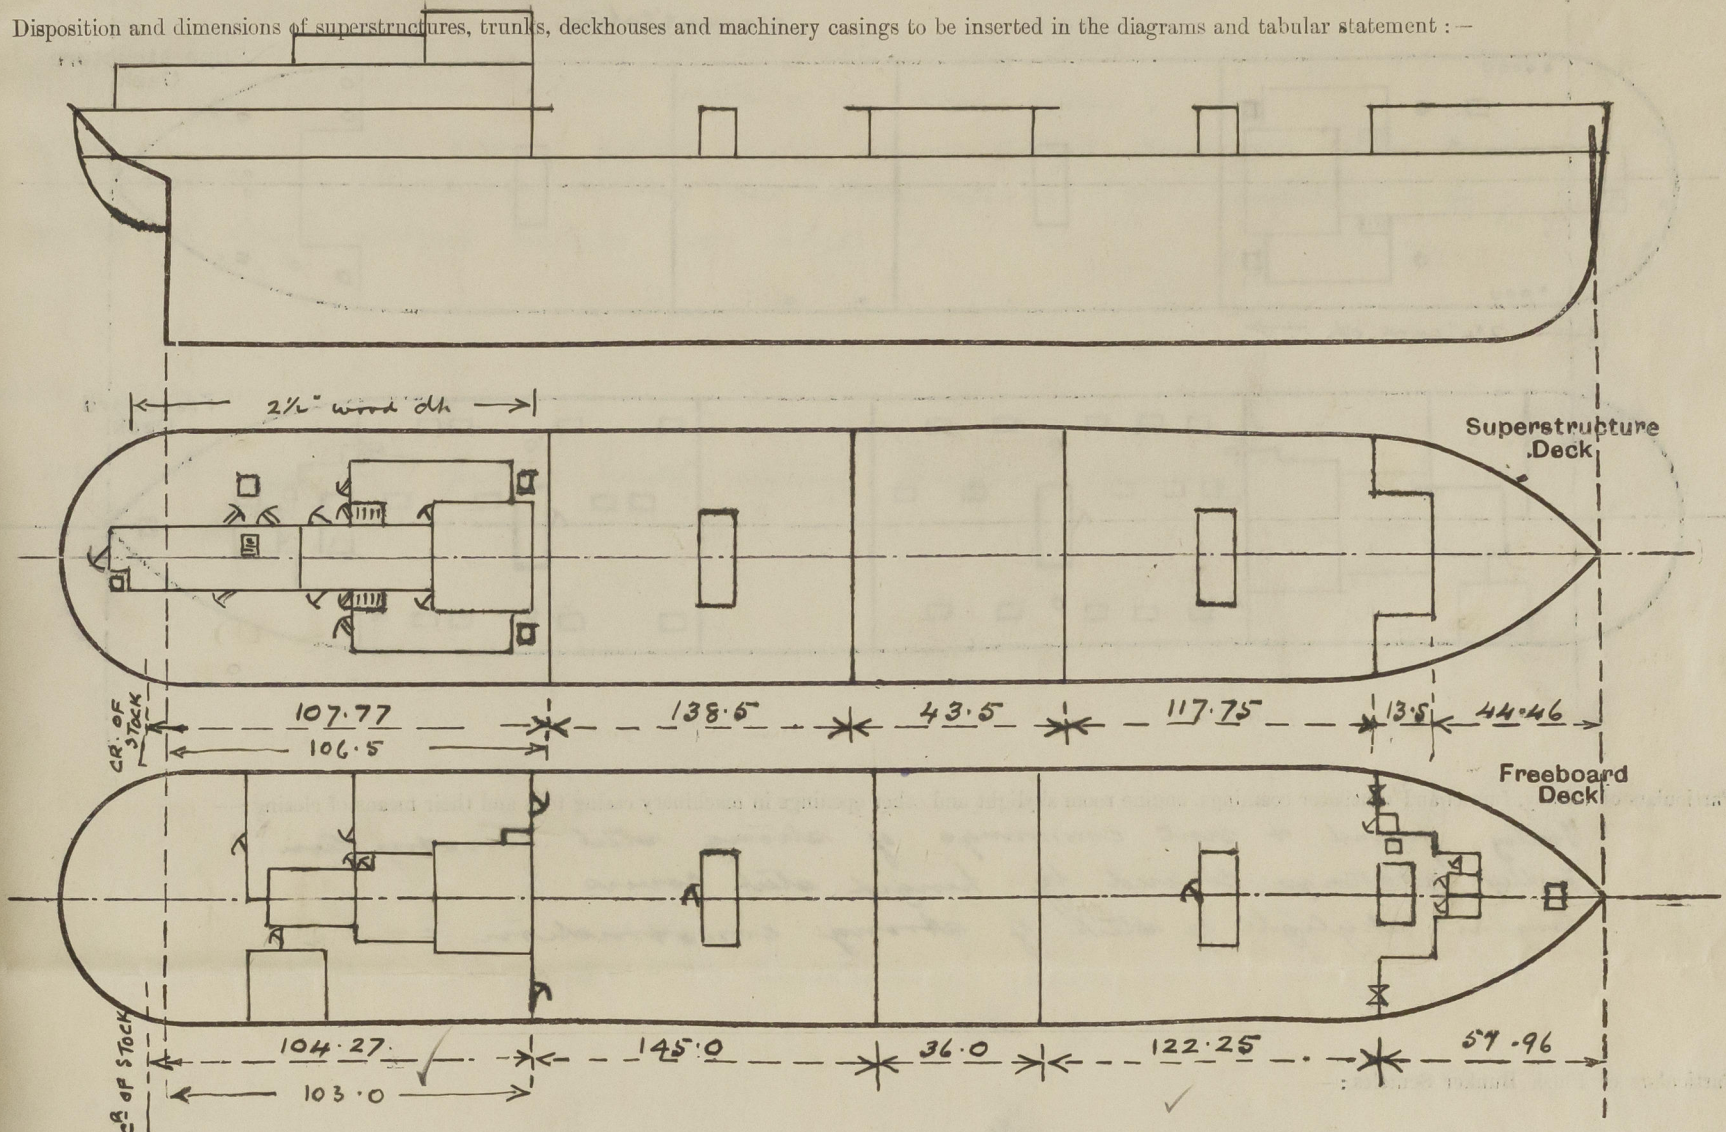 Disposition and dimensions of superstructures, trunks, deckhouses and machinery casings to be inserted in the diagrams and tabular statement :—
2½" wood dk
Superstructure
Deck
CR. OF
STOCK
107.77
138.5
43.5
117.75
13.5
44.46
106.5
Freeboard
Deck
CR OF STOCK
104.27
145.0
36.0
122.25
57.96
103.0